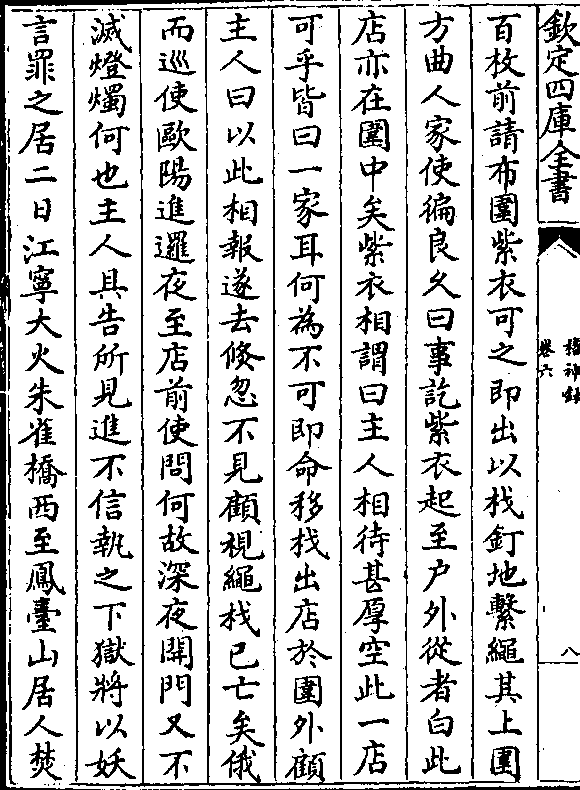 欽定四庫全書
稽神録
卷六
八
百枚前請布圍紫衣可之即出以杙釘地繫繩其上圍
方曲人家使徧良久曰事訖紫衣起至户外從者白此
店亦在圍中矣紫衣相謂曰主人相待甚厚空此一店
可乎皆曰一家耳何為不可即命移杙出店於圍外顧
主人曰以此相報遂去倐忽不見顧視繩杙已亡矣俄
而巡使歐陽進邏夜至店前使問何故深夜開門又不
滅燈燭何也主人具告所見進不信執之下獄將以妖
言罪之居二日江寧大火朱雀橋西至鳳臺山居人焚